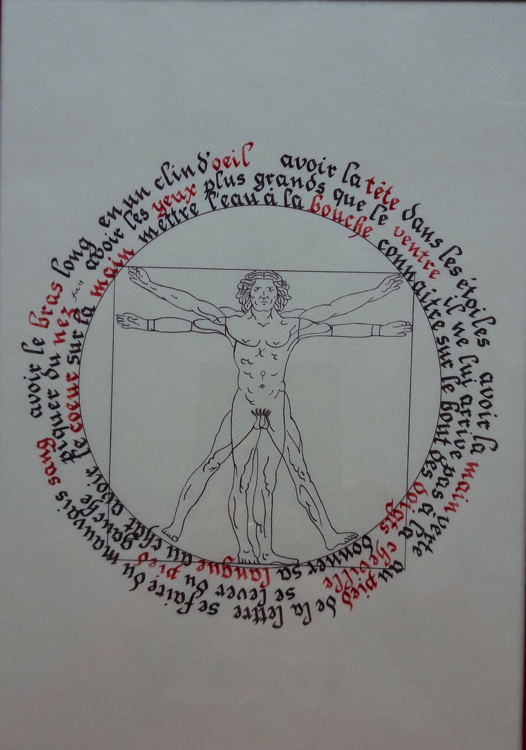 avoir la tête dans les étoiles avoir la main verte au pied de la lettre se faire du mauvais sang avoir le bras long en un clin d'oeil
avoir les yeux plus grands que le ventre il ne lui arrive pas à la cheville se lever du pied gauche piquer du nez
mettre l'eau à la bouche connaitre sur le bout des doigts donner sa langue au chat avoir le coeur sur la main